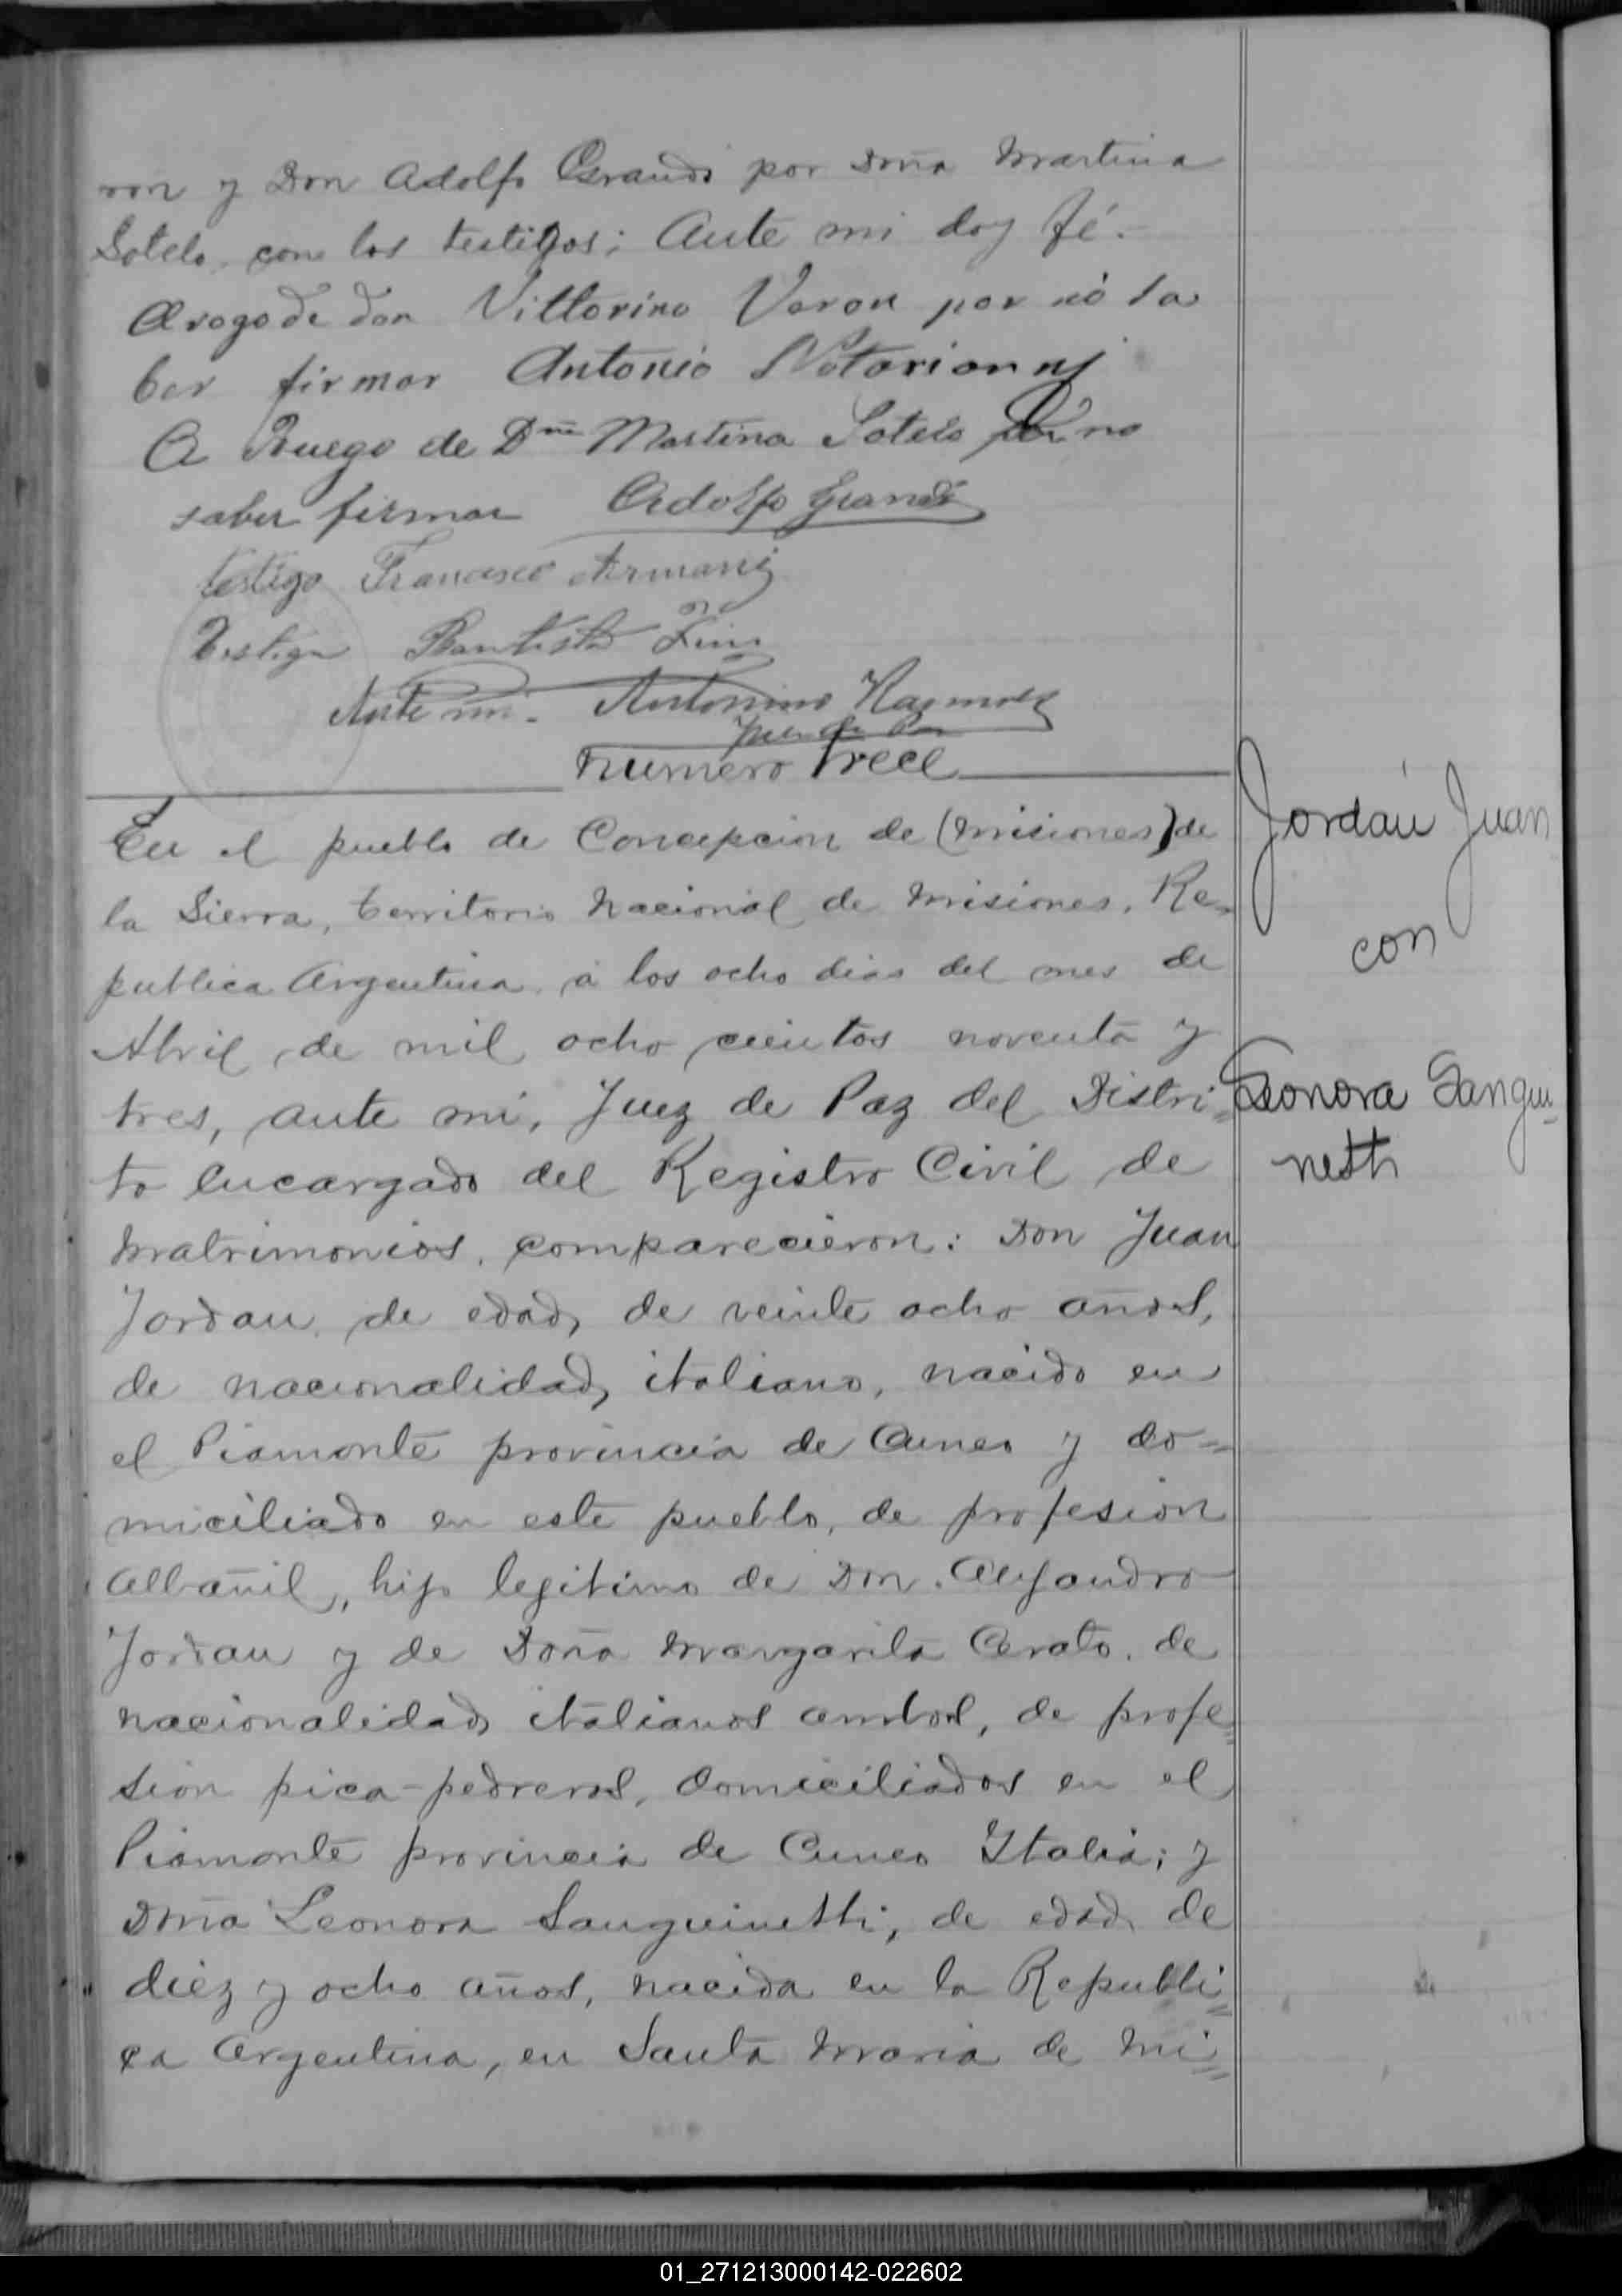 ron y Don Adolfo Grandi por Doña Martina
Sotelo, con los testigos; Ante mi doy fé.
Arogo de don Vittorino Veron por nó sa
ber firmar Antonio Notarianni
A Ruego de Dña Martina Sotelo por no
saber firmar Adolfo Grandi
testigo Francisco Armani
Testigo Bautista
Ante mi. Antonino
Juez de Paz
Numero Trece
En el pueblo de Concepcion de (Misiones) de
la Sierra, territorio Nacional de Misiones, Re-
publica Argentina, á los ocho dias del mes de
Abril de mil ocho cientos noventa y
tres, ante mi, Juez de Paz del Distri=
to encargado del Registro Civil de
Matrimonios, comparecieron: Don Juan
Jordan, de edad, de veinte ocho años,
de nacionalidad, italiano, nacido en
el Piamonte provincia de Cuneo y do=
miciliado en este pueblo, de profesion
Albañil, hijo legitimo de Don. Alejandro
Jordan y de Doña Margarita Cerato, de
nacionalidad, italianos ambos, de profe=
sion pica-pedreros, domiciliados en el
Piamonte provincia de Cuneo Italia; y
Doña Leonora Sanguinetti, de edad, de
diez y ocho años, nacida en la Republi=
ca Argentina, en Santa Maria de Mi=
Jordán Juan
con
Leonora Sangui-
netti
01_271213000142-022602